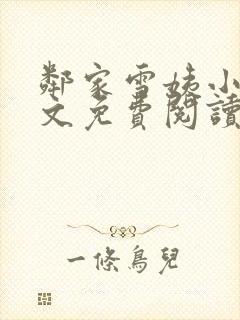 鄰家雪姨小
文免費閱讀
一條鳥兒